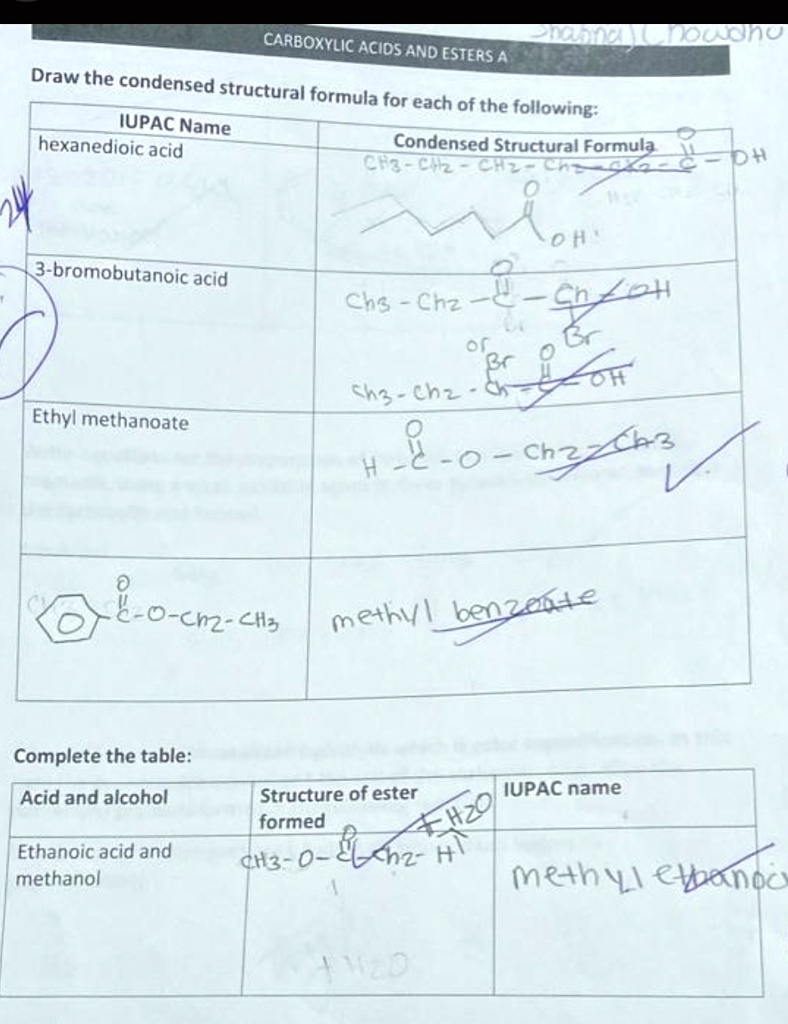 CARBOXYLIC ACIDS AND ESTERS A
Draw the condensed structural formula for each of the following:
IUPAC Name
Condensed Structural Formula
hexanedioic acid
O
CH3-CH2-CH2-Ch2-CH2-C-OH
O
OH
3-bromobutanoic acid
O
Ch3-Ch2-C-Ch-OH
Br
or
Br O
Ch3-Ch2-Ch-C-OH
Ethyl methanoate
O
H-C-O-Ch2-Ch3
O
C-O-CH2-CH3
methyl benzoate
Complete the table:
Acid and alcohol
Structure of ester formed
IUPAC name
+ H2O
Ethanoic acid and methanol
O
CH3-O-C-Ch2-H
methyl
+ H2O